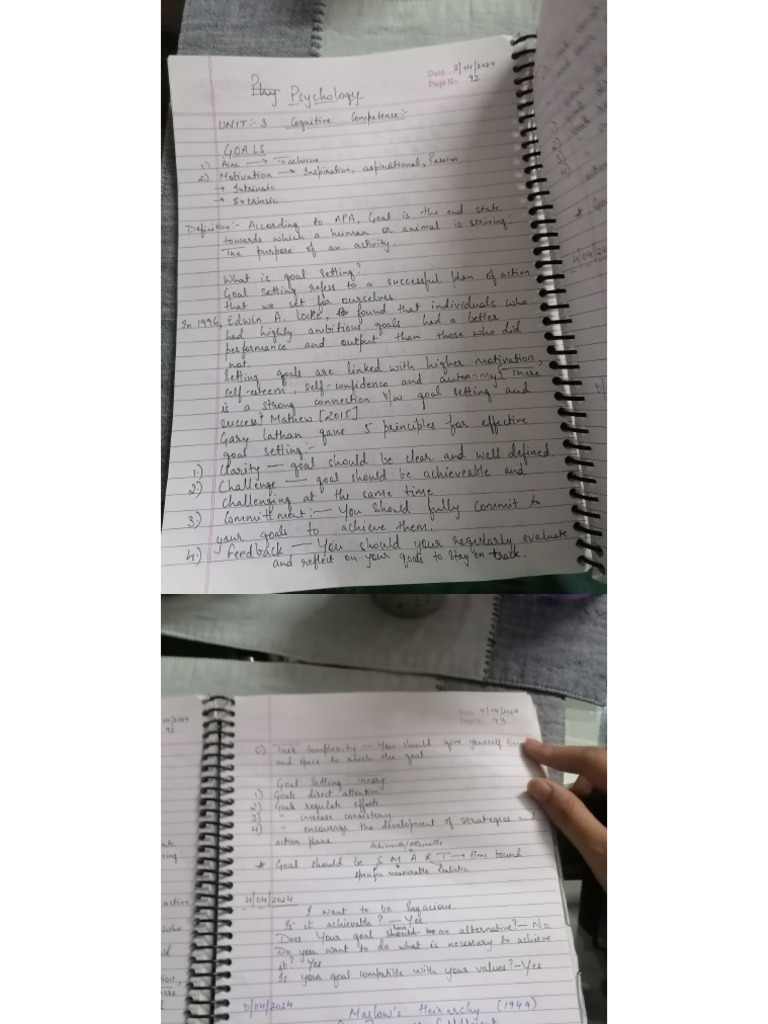 Date 3/04/2024
Page No. 92
Phy Psychology
UNIT:- 3 Cognitive Competence:-
GOALS
1) Aim → To achieve
2) Motivation → Inspiration, aspirational, Passion
→ Intrinsic
→ Extrinsic
Definition:- According to APA, Goal is the end state
towards which a human or animal is striving.
The purpose of an activity.
What is goal setting?
Goal setting refers to a successful plan of action
that we set for ourselves.
In 1996, Edwin A. Locke, found that individuals who
had highly ambitious goals had a better
performance and output than those who did
not.
Setting goals are linked with higher motivation,
self-esteem, self-confidence and autonomy There
is a strong connection b/w goal setting and
success Mathew [2015]
Gary Lathan gave 5 principles for effective
goal setting:-
1.) Clarity — goal should be clear and well defined.
2.) Challenge — goal should be achieveable and
challenging at the same time
3.) Committment:— You should fully commit to
your goals to achieve them.
4.) feedback — You should your regularly evaluate
and reflect on your goals to stay on track.
4/04/2024
93
5) Task Complexity — You should give yourself time
and space to reach the goal
Goal Setting theory
1) Goals direct attention
2) Goals regulate efforts
3) " increase consistency
4) " encourage the development of strategies and
action plans
* Goal should be S M A R T → time bound
specific measurable Realistic
4/04/2024
I want to be Sagacious
Is it achievable? — Yes
Does Your goal should be an alternative? — No
Do you want to do what is necessary to achieve
it? Yes
Is your goal compatible with your values? — Yes
Maslow's Heirarchy (1944)